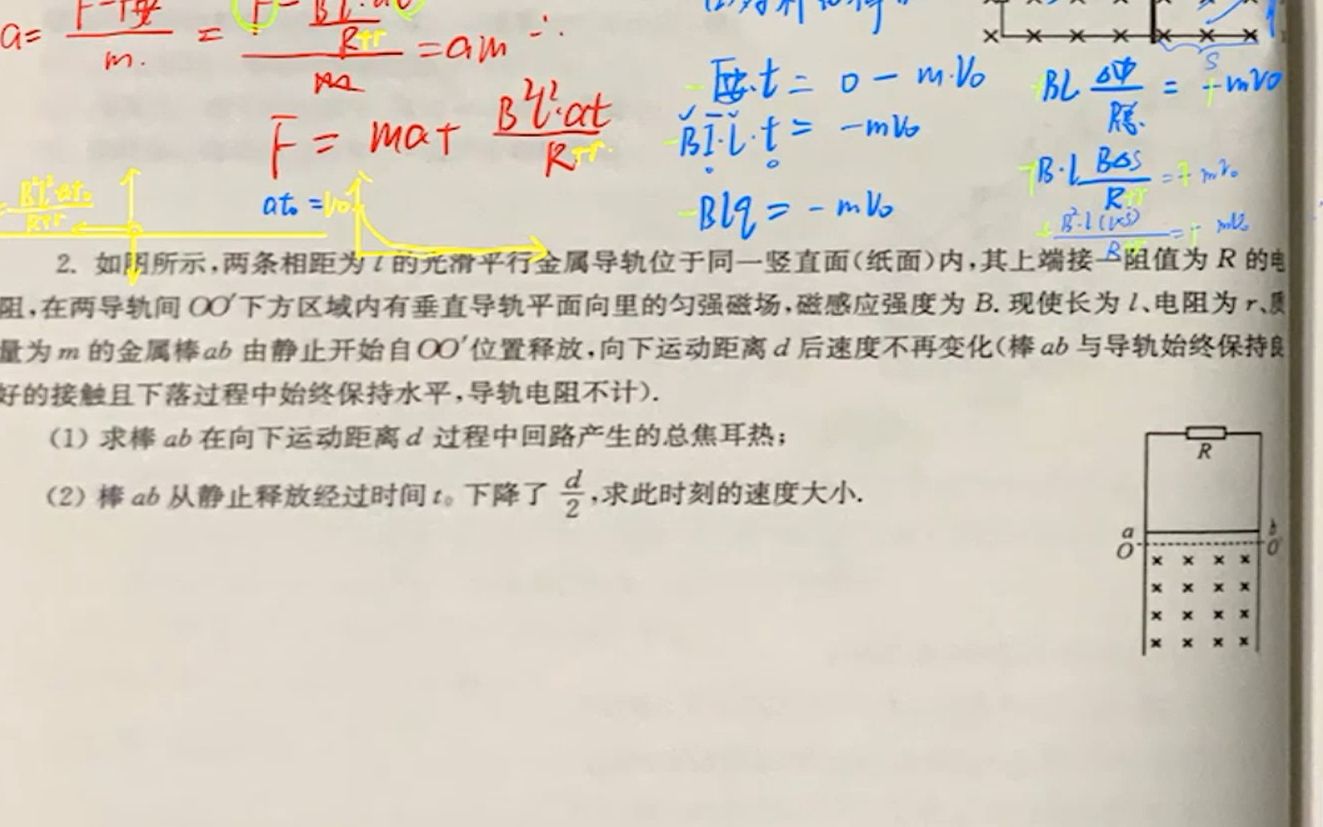 a= = =am
m. R+r m
F = ma+ B²l²·at / R+r
at₀ = V₀
-F安·t = 0 - m·V₀
-BI·L·t = -mV₀
-BLq = -mV₀
BL ΔΦ/R总 = +mV₀
B·L BΔS/R+r = + mV₀
S
2. 如图所示,两条相距为 l 的光滑平行金属导轨位于同一竖直面(纸面)内,其上端接一阻值为 R 的电
阻,在两导轨间 OO′下方区域内有垂直导轨平面向里的匀强磁场,磁感应强度为 B. 现使长为 l、电阻为 r、质
量为 m 的金属棒 ab 由静止开始自 OO′位置释放,向下运动距离 d 后速度不再变化(棒 ab 与导轨始终保持良
好的接触且下落过程中始终保持水平,导轨电阻不计).
(1) 求棒 ab 在向下运动距离 d 过程中回路产生的总焦耳热;
(2) 棒 ab 从静止释放经过时间 t₀ 下降了 d/2,求此时刻的速度大小.
R
a b
O O′